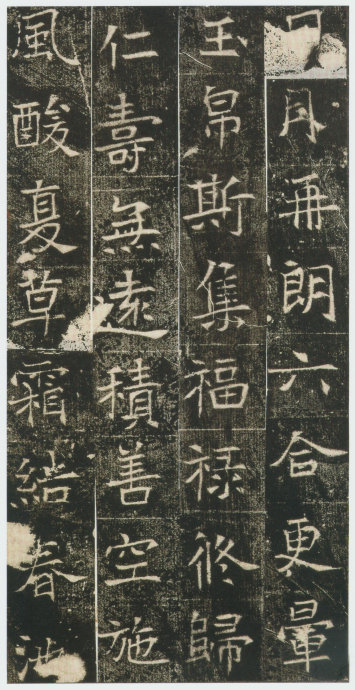 日月再朗六合更暈
玉帛斯集福禄攸歸
仁壽無遠積善空施
風酸夏草霜結春池